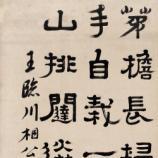 茅檐長掃
手自栽一
山排闥送
王臨川相公